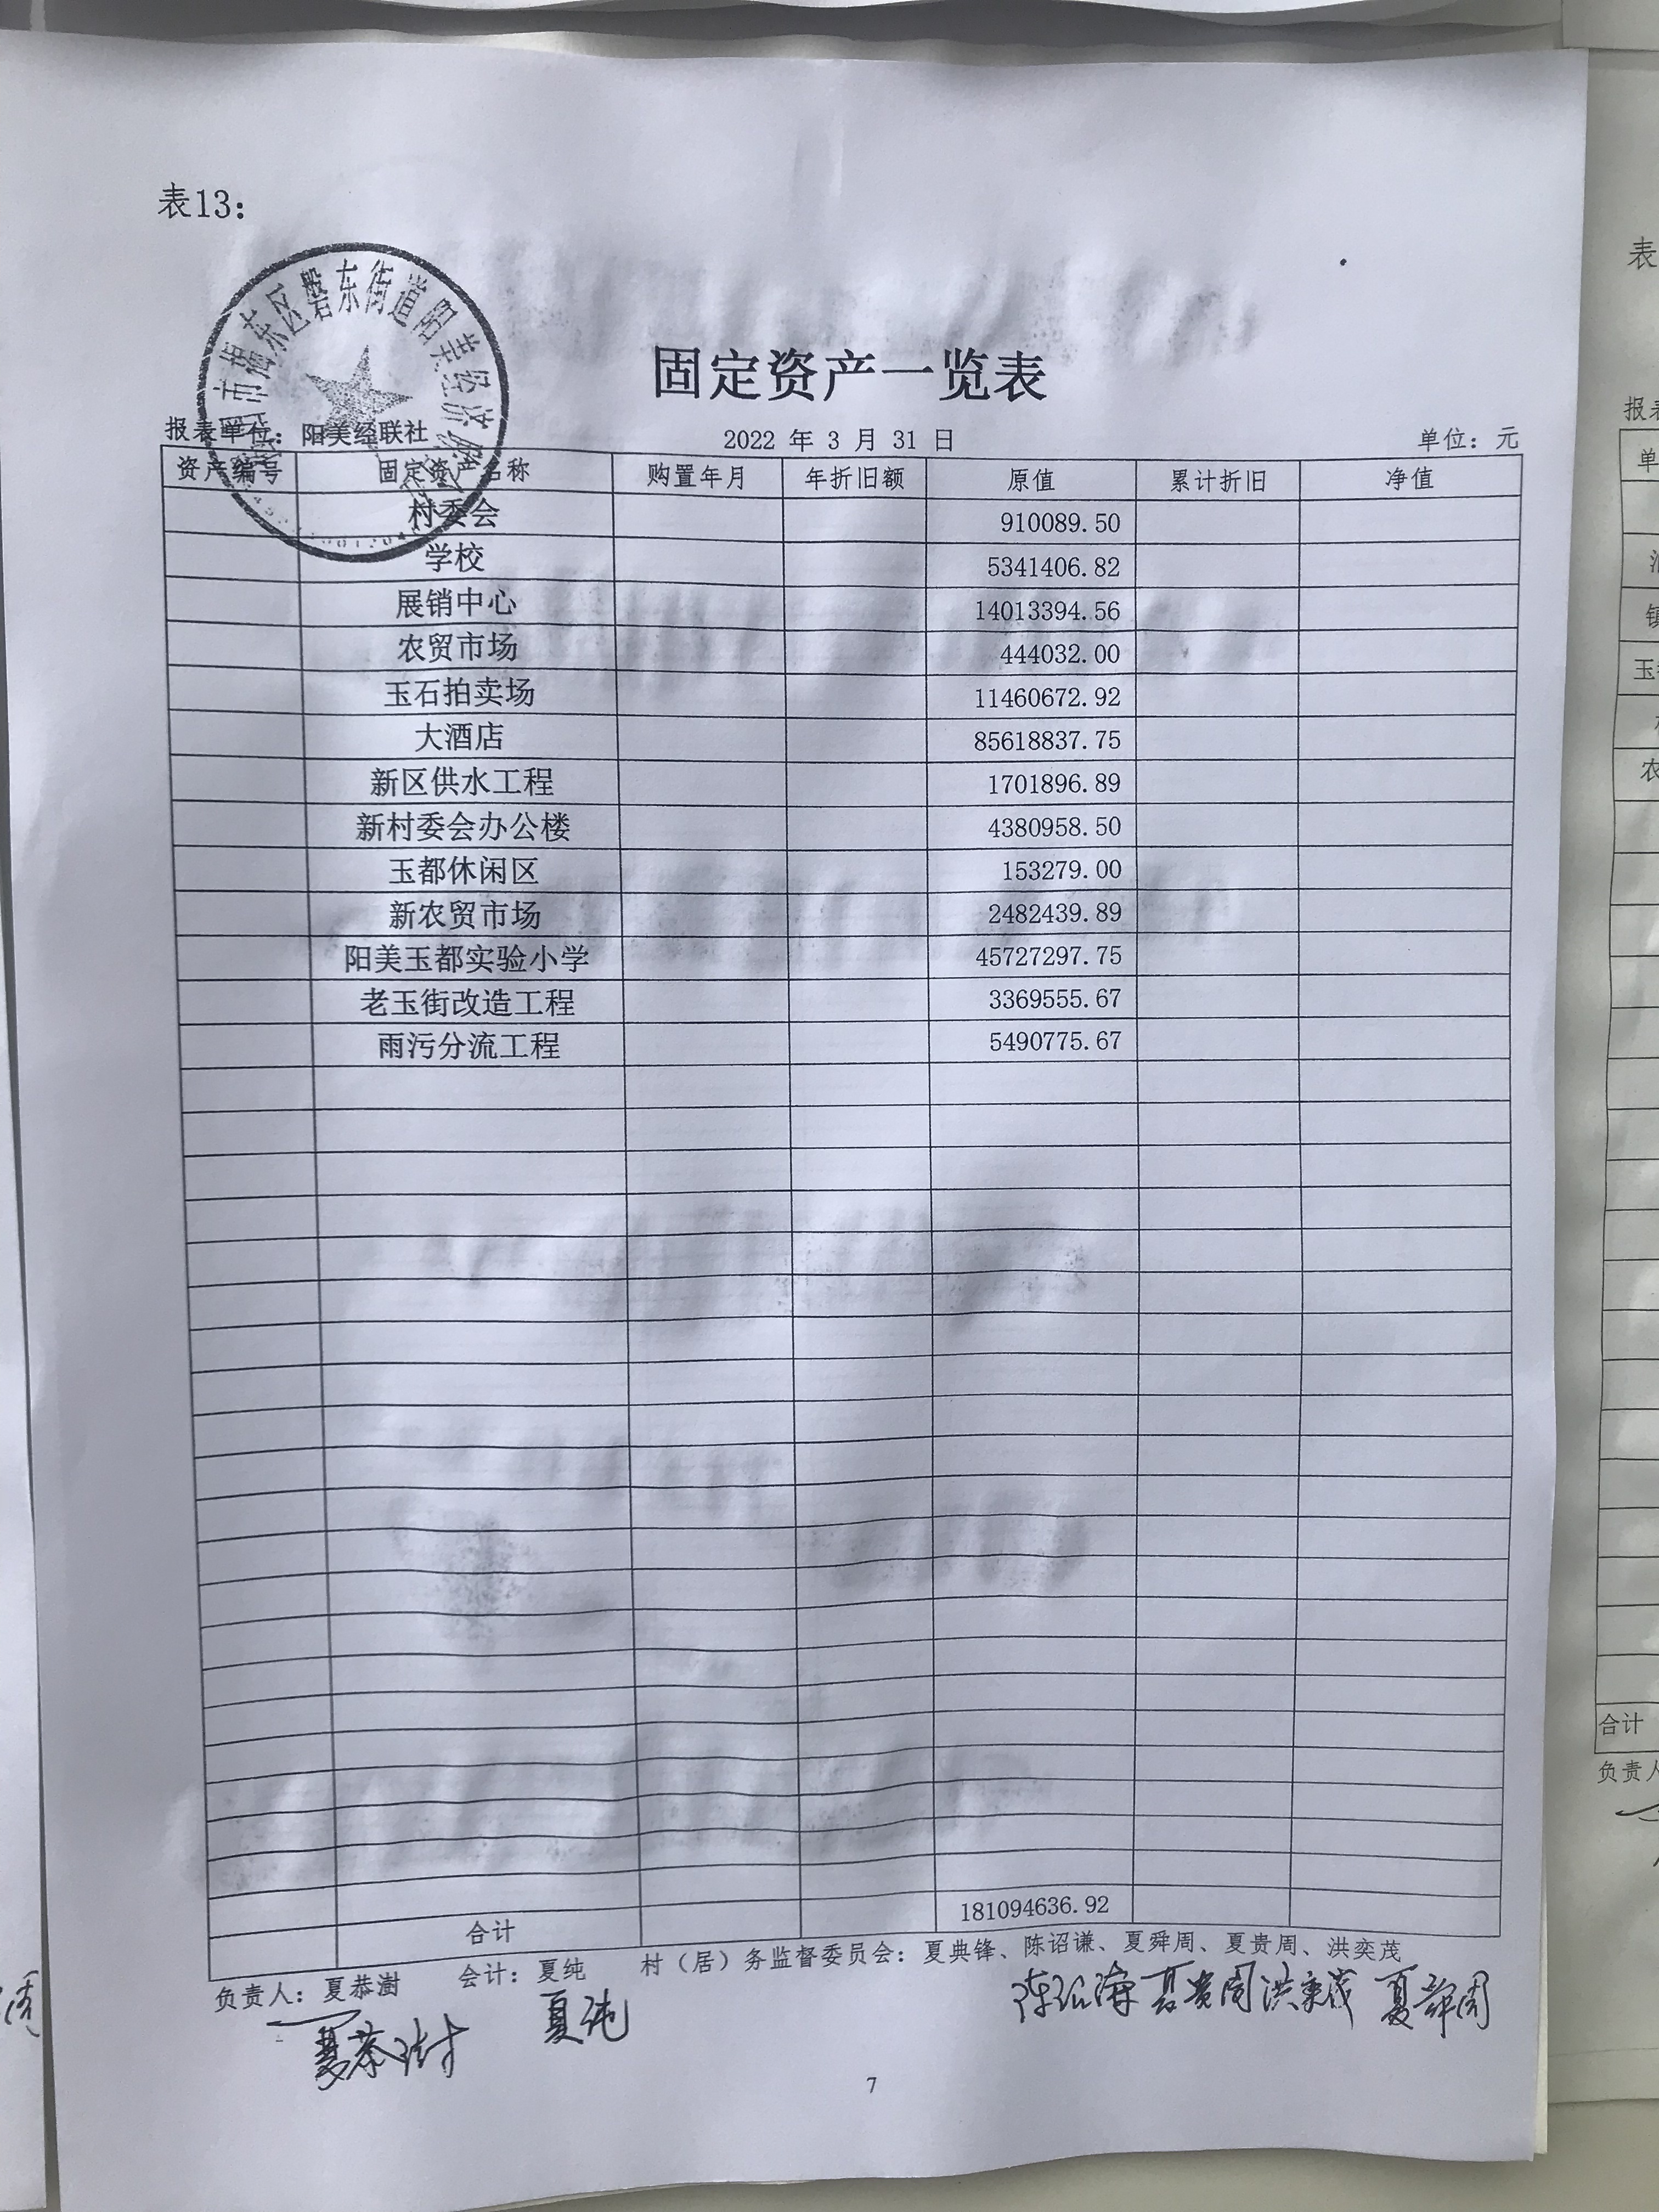 表13：
市揭东区磐东街道阳美经济联
固定资产一览表
报表单位：阳美经联社 2022 年 3 月 31 日 单位：元
资产编号 固定资产名称 购置年月 年折旧额 原值 累计折旧 净值
村委会 910089.50
学校 5341406.82
展销中心 14013394.56
农贸市场 444032.00
玉石拍卖场 11460672.92
大酒店 85618837.75
新区供水工程 1701896.89
新村委会办公楼 4380958.50
玉都休闲区 153279.00
新农贸市场 2482439.89
阳美玉都实验小学 45727297.75
老玉街改造工程 3369555.67
雨污分流工程 5490775.67
合计 181094636.92
负责人：夏恭澍 会计：夏纯 村（居）务监督委员会：夏典锋、陈诏谦、夏舜周、夏贵周、洪奕茂
夏恭澍 夏纯 陈诏谦 夏贵周 洪奕茂 夏舜周
7
表
报表
单
玉
农
合计
负责人